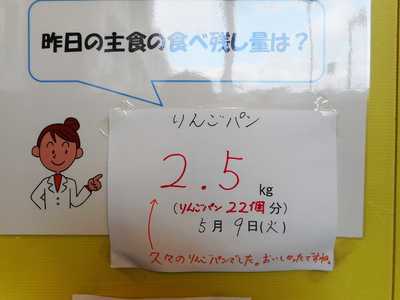 昨日の主食の食べ残し量は？
りんごパン
2.5 kg
(りんごパン 22個分)
5月 9日(火)
久々のりんごパンでした。おいしかったですね。